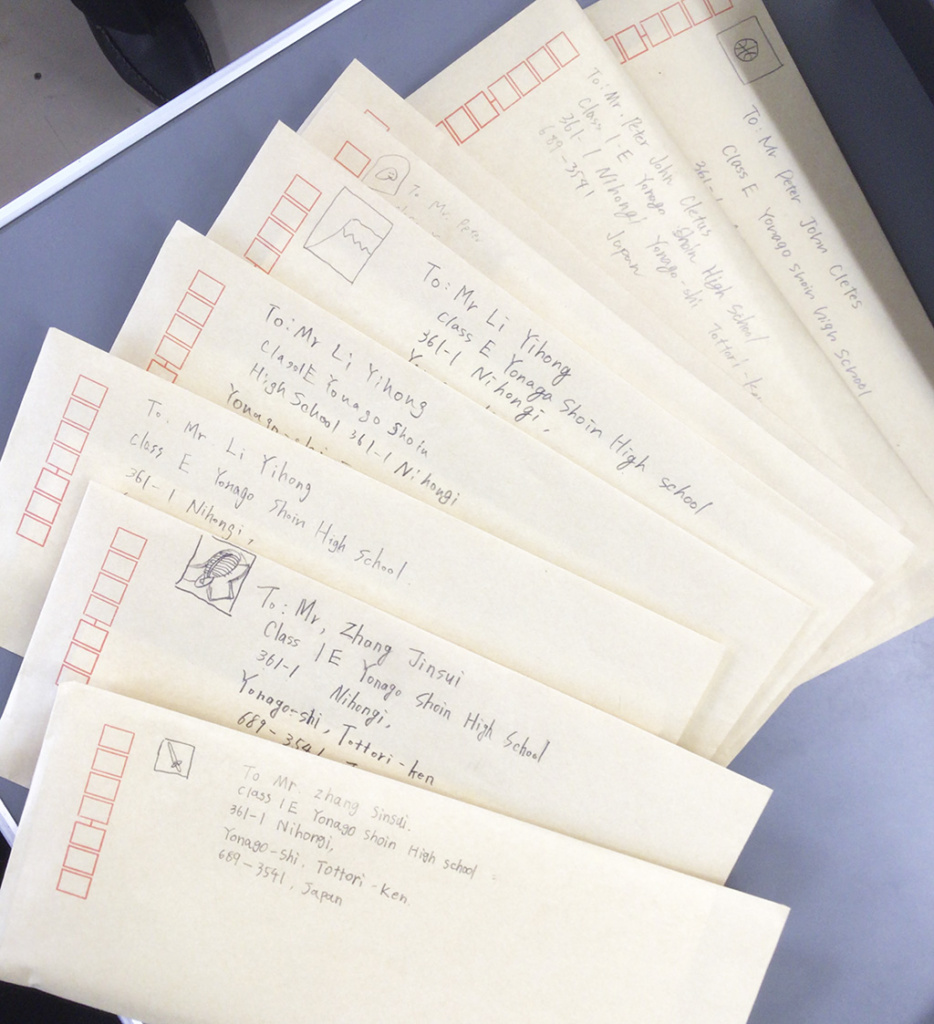 To: Mr Peter John Cletes
Class E Yonago Shoin high school
361-
To: Mr. Peter John Cletus
Class 1-E Yonago Shoin High School
361-1 Nihongi Yonago-shi Tottori-ken
689-3541 Japan
To Mr. Peter
To: Mr Li Yihong
Class E Yonaga Shoin High school
361-1 Nihongi,
To: Mr Li Yihong
Class1E Yonago Shoin
High School 361-1 Nihongi
Yonago-shi
To: Mr. Li Yihong
Class E Yonago Shoin High School.
361-1 Nihongi,
To: Mr, Zhang Jinsui
Class 1E Yonago Shoin High School
361-1 Nihongi,
Yonago-shi, Tottori-ken
689-3541
To Mr. Zhang Sinsui.
Class 1E Yonago Shoin High school
361-1 Nihongi,
Yonago-Shi. Tottori-Ken.
689-3541, Japan